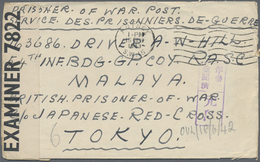 PRISONER OF WAR POST.
SERVICE DES PRISONNIERS-DE-GUERRE
63686. DRIVER A. W. HILL
4TH INF. BDG. GP. COY R.A.S.C
MALAYA.
BRITISH PRISONER OF WAR
C/O JAPANESE RED-CROSS.
TOKYO
EXAMINER 7822